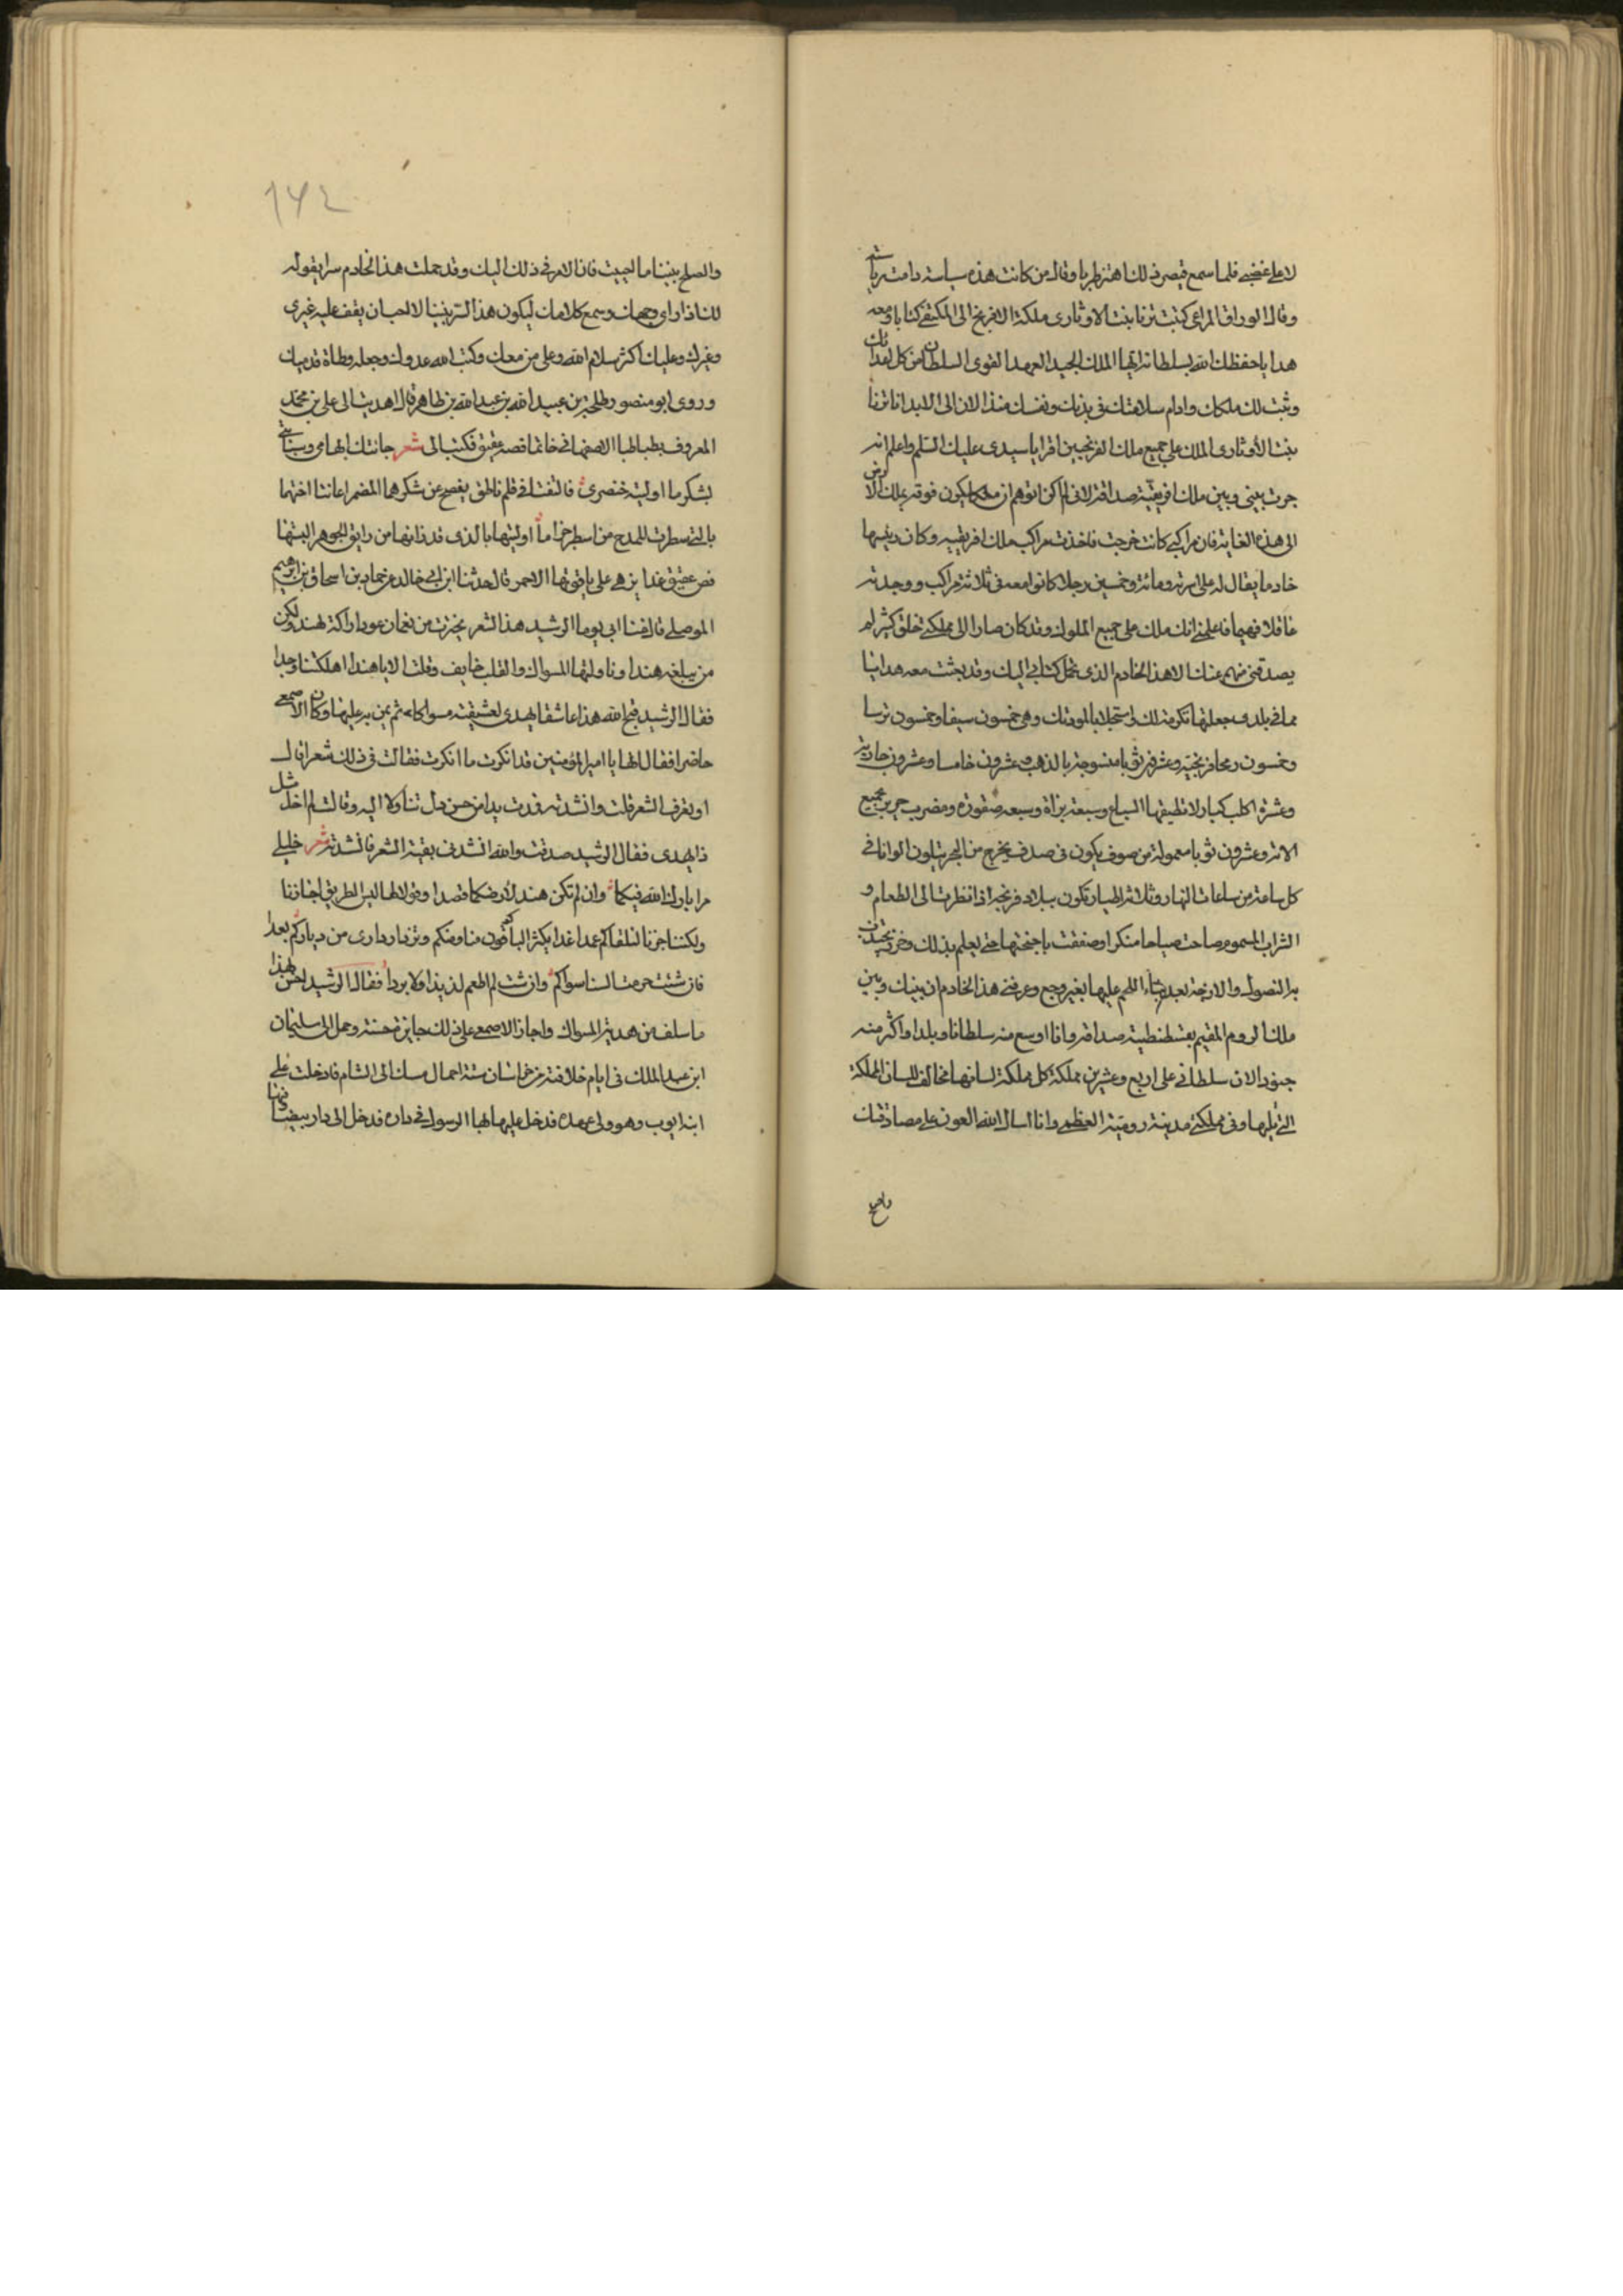 لا على غضبى فلما سمع قيصر ذلك اهتز طربا وقال من كانت هذه سياسته دامت رياسته
وقال الوراق المراغى كتبت ترنا بنت الاوتارى ملكة الافرنج الى المكتفى كتابا ومعه
هدايا حفظك الله بسلطانه ايها الملك الجيد العهد القوى السلطان من كل اعدائك
وثبت لك ملكك وادام سلامتك فى بدنك ونفسك منذ الان الى الابد انا ترنا
بنت الاوتارى الملك على جميع ملك الفرنجيين اقرا يا سيدى عليك السلم واعلم انه
جرت بينى وبين ملك افريقية صداقة لانى لم اكن اتوهم ان ملكا يكون فوقه يملك الارض
الى هذه الغاية فان مراكبى كانت خرجت فاخذت مراكب ملك افريقيه وكان رئيسها
خادما يقال له على اسرته ومائة وخمسين رجلا كانوا معه فى ثلاثة مراكب ووجدته
عاقلا فهيما فاعلمنى انك ملك على جميع الملوك وقد كان صار الى مملكتى خلق كثير لم
يصدقنى منهم عنك الا هذا الخادم الذى يحمل كتابى اليك وقد بعثت معه هدايا
مما فى بلدى جعلتها تكرمة لك واستجلابا لمودتك وهى خمسون سيفا وخمسون ترسا
وخمسون رمحا فرنجية وعشرون ثوبا منسوجة بالذهب وعشرون خادما وعشرون جارية
وعشرة اكلب كبار لا تطيقها السباع وسبعة بزاة وسبعه صقوره ومضرب حرير بجميع
الاته وعشرون ثوبا معمولة من صوف يكون فى صدف يخرج من البحر يتلون الوانا فى
كل ساعة من ساعات النهار وثلاثة اطيار تكون ببلاد فرنجه اذا نظرت الى الطعام و
الشراب المسموم صاحت صياحا منكرا وصفقت باجنحتها حتى يعلم بذلك وخرز يجذب
به النصول والازجة بعد بناء اللحم عليها بغير وجع وعرفنى هذا الخادم ان بينك وبين
ملك الروم المقيم بقسطنطينية صداقة وانا اوسع منه سلطانا وبلدا واكثر منه
جنودا لان سلطانى على اربع وعشرين مملكة كل مملكة لسانها مخالف للسان المملكة
التى تليها وفى مملكتى مدينة رومية العظمى وانا اسال الله العون على مصادقتك
والصلح
١٤٢
والصلح بيننا ما احببت فان الامر فى ذلك اليك وقد حملت هذا الخادم سرا يقوله
لك اذا راى وجهك وسمع كلامك ليكون هذا السر بيننا لا احب ان يقف عليه غيرى
وغيرك وعليك اكثر سلام الله وعلى من معك وكبت الله عدوك وجعله وطاة قدميك
وروى ابو منصور طلحة بن عبيد الله بن عبد الله بن طاهر قال اهديت الى على بن محمد
المعروف بطباطبا الاصفهانى خاتما فصه عقيق فكتب الى شعر جانتك ابهامى وسبابتى
بشكر ما اوليته خنصرى فالتفتا فى قلم ناطق يفصح عن شكرهما المضمر اعانتا اختهما
بالتى سطرت للمدح من اسطر خزاما اوليتها بالذى قد زانها من رايق الجوهر البستها
فص عقيق غدا يزهى على ياقوتها الاحمر قال حدثنا ابن ابى خالد عن حماد بن اسحاق بن ابرهيم
الموصلى قال غنا ابى يوما الرشيد هذا الشعر تخيرت من نعمان عود اراكة لهند ولكن
من يبلغه هندا وناولتها المسواك والقلب خايف وقلت الا يا هند اهلكتنا وجدا
فقال الرشيد قبح الله هذا عاشقا يهدى لعشيقته مسواكا ثم يمن به عليها وكان الاصمعى
حاضرا فقال لها يا امير المؤمنين قد انكرت ما انكرت فقالت فى ذلك شعرا قال
او تعرف الشعر قلت وانشدته فمدت يدا من حسن دل تناولا اليه وقالت لم اخل مثل
ذا يهدى فقال الرشيد صدقت والله انشدنى بقية الشعر فانشدته شعر خليلى
مرا بارك الله فيكما وان لم تكن هند لارضكما قصدا وقولا لها ليس الطريق اجازنا
ولكننا جزنا لنلقاكم عمدا غدا يكثر الباكون منا ومنكم وتزداد دارى من دياركم بعدا
فان شئت حرمت النسا سواكم وان شئت لم اطعم لذيذا ولا بردا فقال الرشيد احسن بهذا
ما سلف من هدية المسواك واجاز الاصمعى على ذلك جايزة حسنة وحمل الى سليمان
ابن عبد الملك فى ايام خلافته من خراسان ستة احمال مسك الى الشام فادخلت على
ابنه ايوب وهو ولى عهده فدخل عليه بها الرسول فى داره فدخل الى دار بيضا